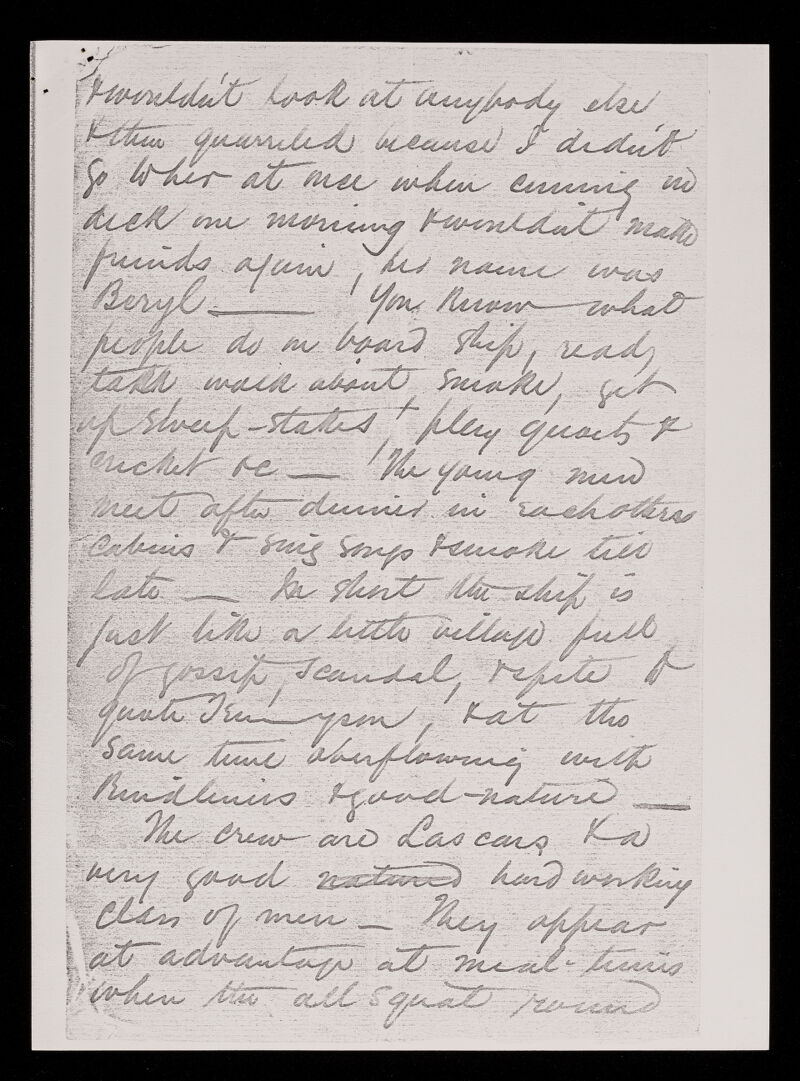 & wouldn't look at anybody else
& then quarreled because I didn't
go to her at once when coming on
deck one morning & wouldn't make
friends again, her name was
Beryl — You know what
people do on board ship, read,
talk, walk about, smoke, get
up sweep-stakes, & play quoits &
cricket &c — The young men
meet after dinner in each others
cabins & sing songs & smoke till
late — In short the ship is
just like a little village full
of gossip, scandal, & spite to
quote Tennyson, & at the
same time overflowing with
kindliness & good-nature —
The crew are Lascars & a
very good natured hard working
class of men — They appear
at advantage at meal-times
when the all squat round